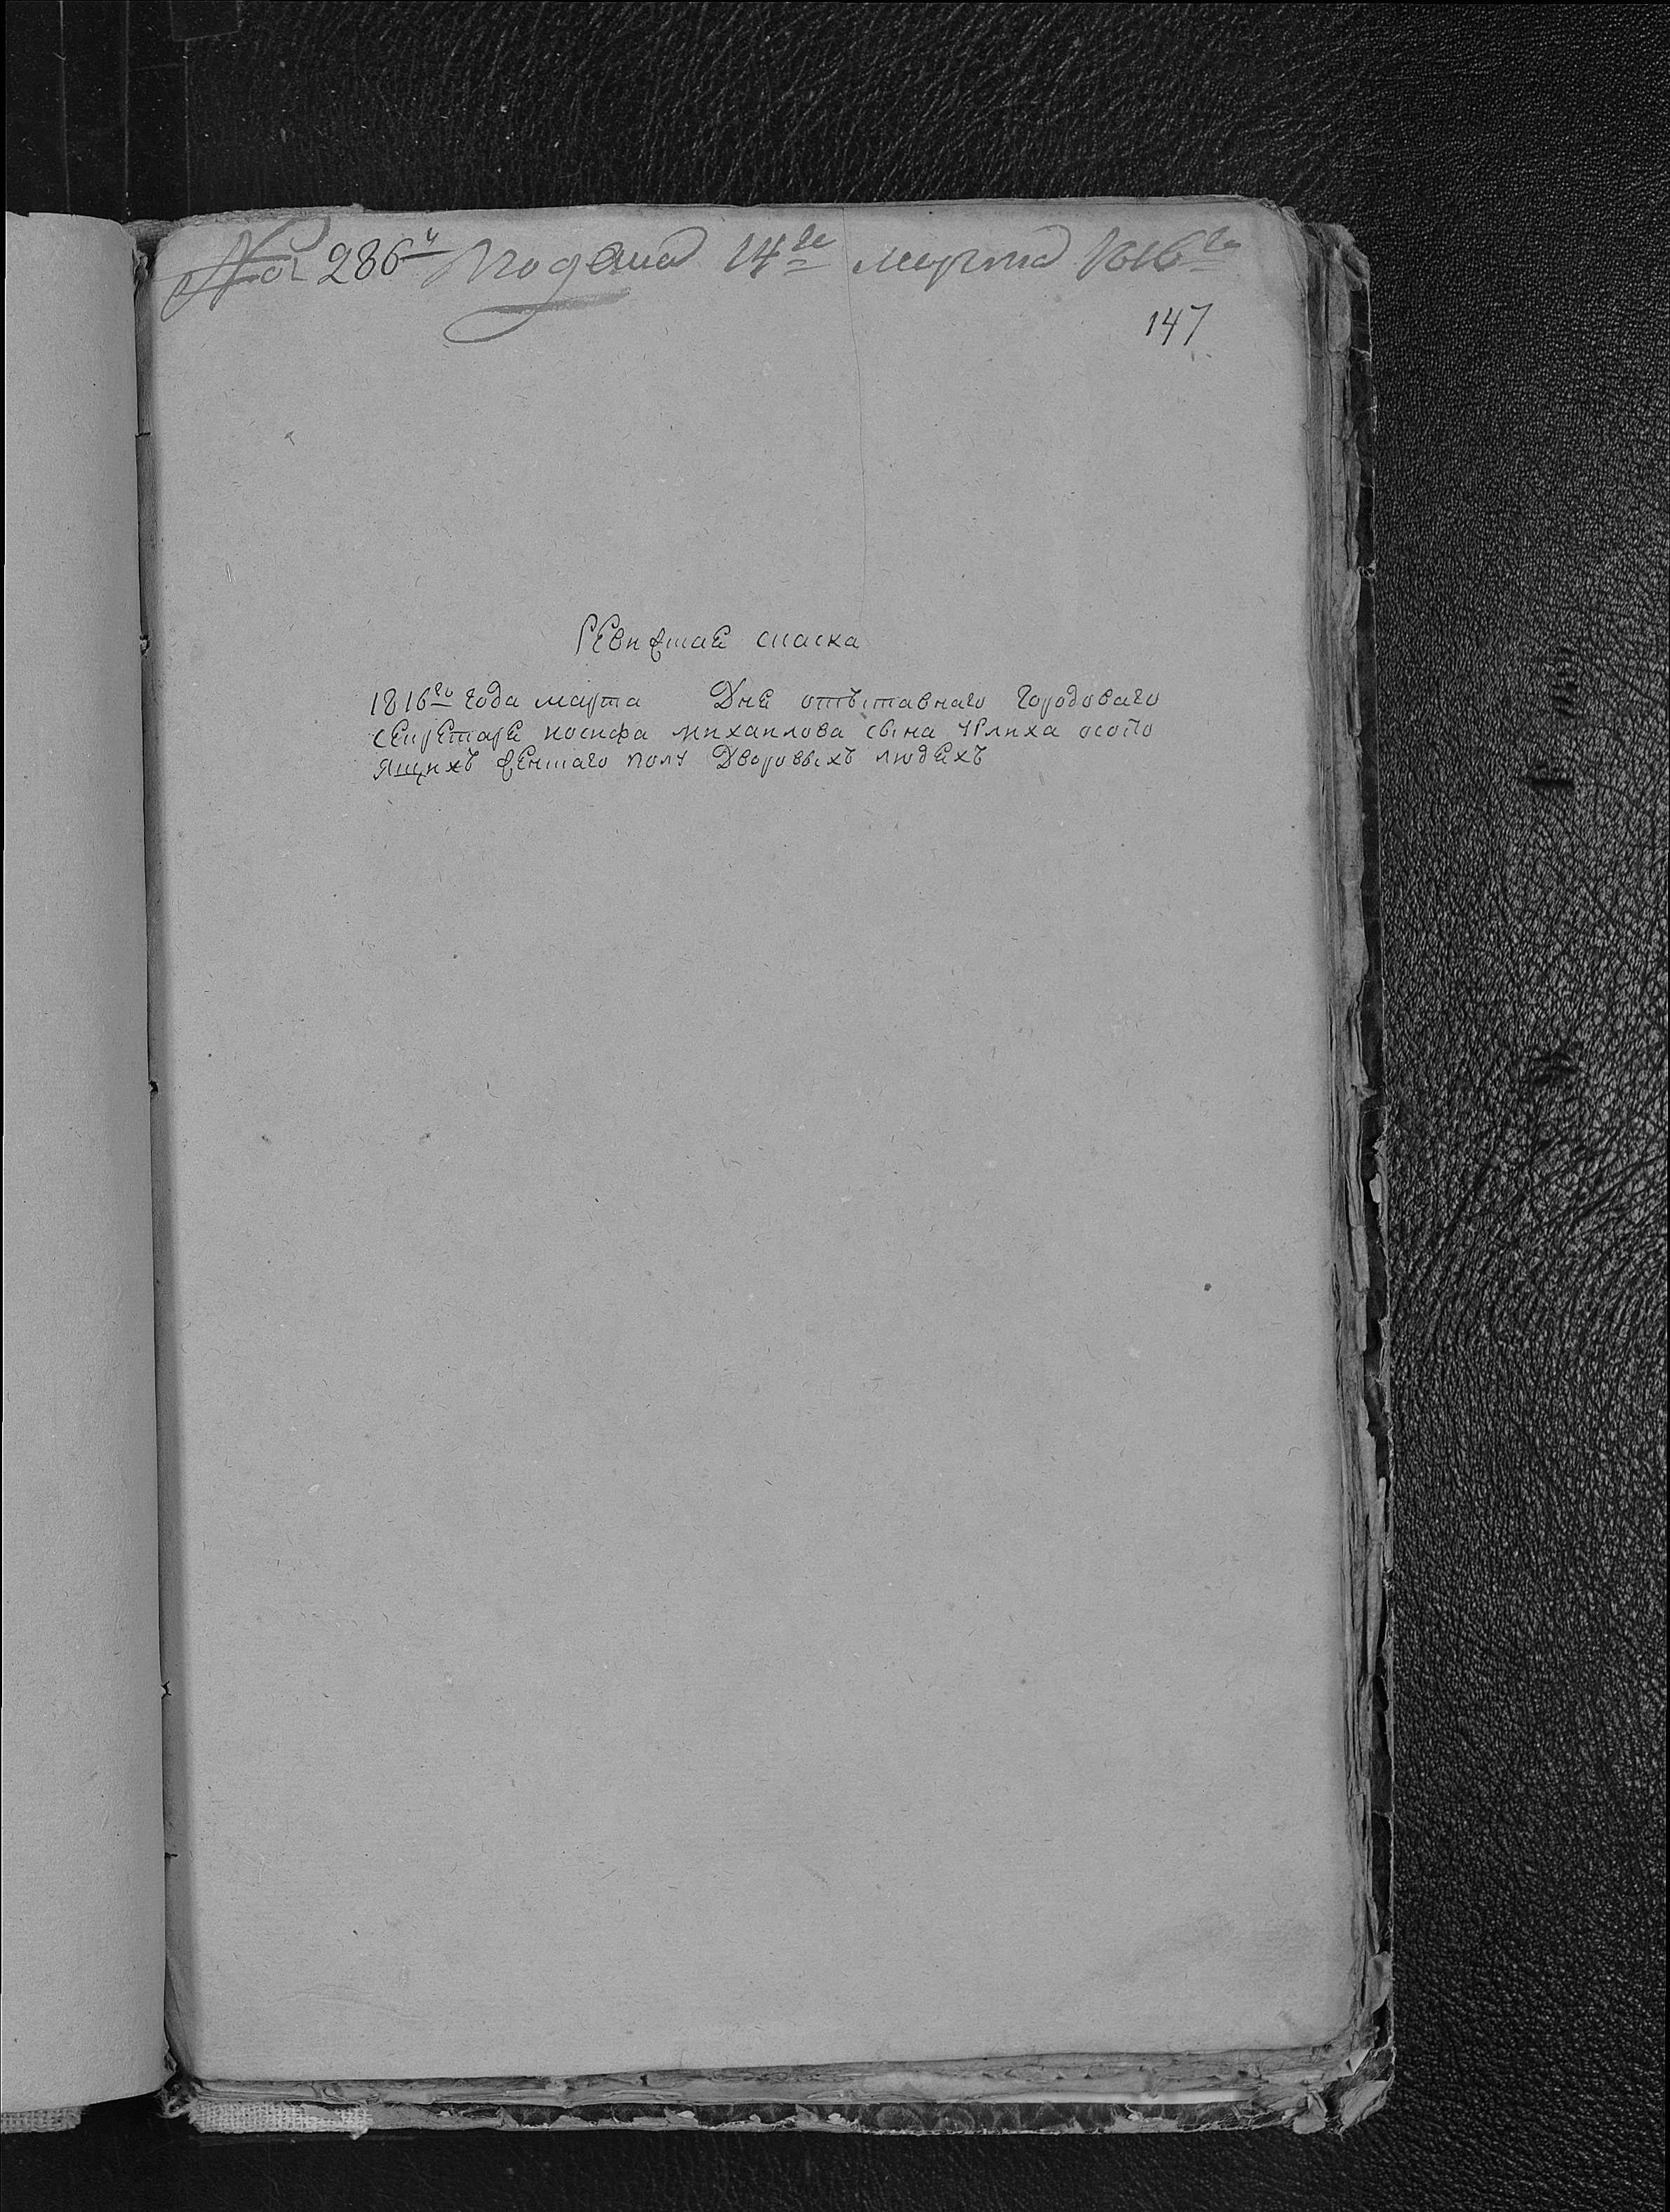 № 286й Подана 14го марта 1816го
147
Ревижская скаска
1816го года марта Дня отъставнаго Городоваго
секретаря иосифа михаилова сына ососто
ящихъ женскаго полу Дворовыхъ людехъ